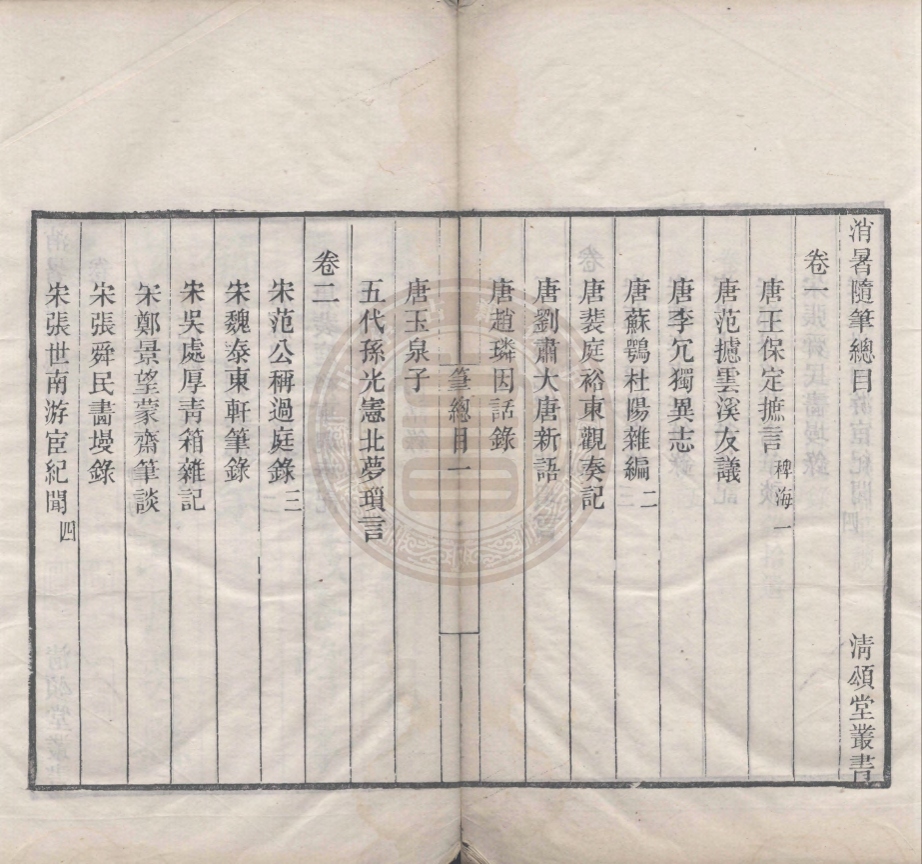 消暑隨筆總目 清頌堂叢書
卷一
唐王保定摭言 稗海一
唐范攄雲溪友議
唐李冗獨異志
唐蘇鶚杜陽雜編 二
唐裴庭裕東觀奏記
唐劉肅大唐新語
唐趙璘因話錄
筆總目 一
唐玉泉子
五代孫光憲北夢瑣言
卷二
宋范公稱過庭錄 三
宋魏泰東軒筆錄
宋吳處厚青箱雜記
宋鄭景望蒙齋筆談
宋張舜民畵墁錄
宋張世南游宦紀聞 四